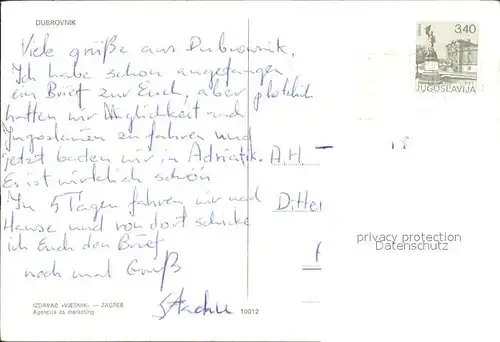 DUBROVNIK
Viele grüße aus Dubrownik.
Ich habe schon angefangen
ein Brief zur Euch, aber plötzlich
hatten wir Möglichkeit nach
Jugoslawien zu fahren und
jetzt baden wir in Adriatik.
Es ist wirklich schön
In 5 Tagen fahren wir nach
Hause und von dort schicke
ich Euch den Brief
noch mal Gruß
3,40
JUGOSLAVIJA
A.H
privacy protection
Datenschutz
IZDAVAČ »VJESNIK« — ZAGREB
Agencija za marketing
10012